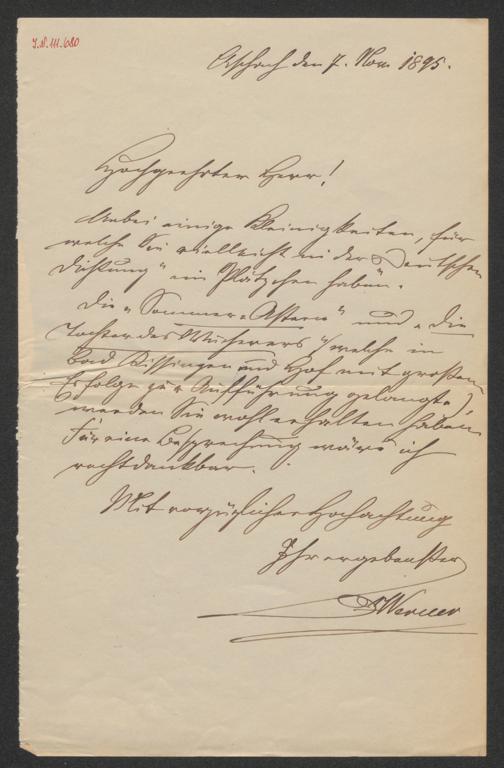 I.N. 111.680
Aschach den 7. Nov. 1895.
Hochgeehrter Herr!
Anbei einige Kleinigkeiten, für
welche Sie vielleicht in der „Deutschen
Dichtung" ein Plätzchen haben.
Die „Sommer-Astern" und „die
Tochter des Wucherers" (welche in
Bad Kissingen und Hof mit großem
Erfolge zur Aufführung gelangte)
werden Sie wohl erhalten haben.
Für eine Besprechung wäre ich
recht dankbar.
Mit vorzüglicher Hochachtung
Ihr ergebenster
Werner